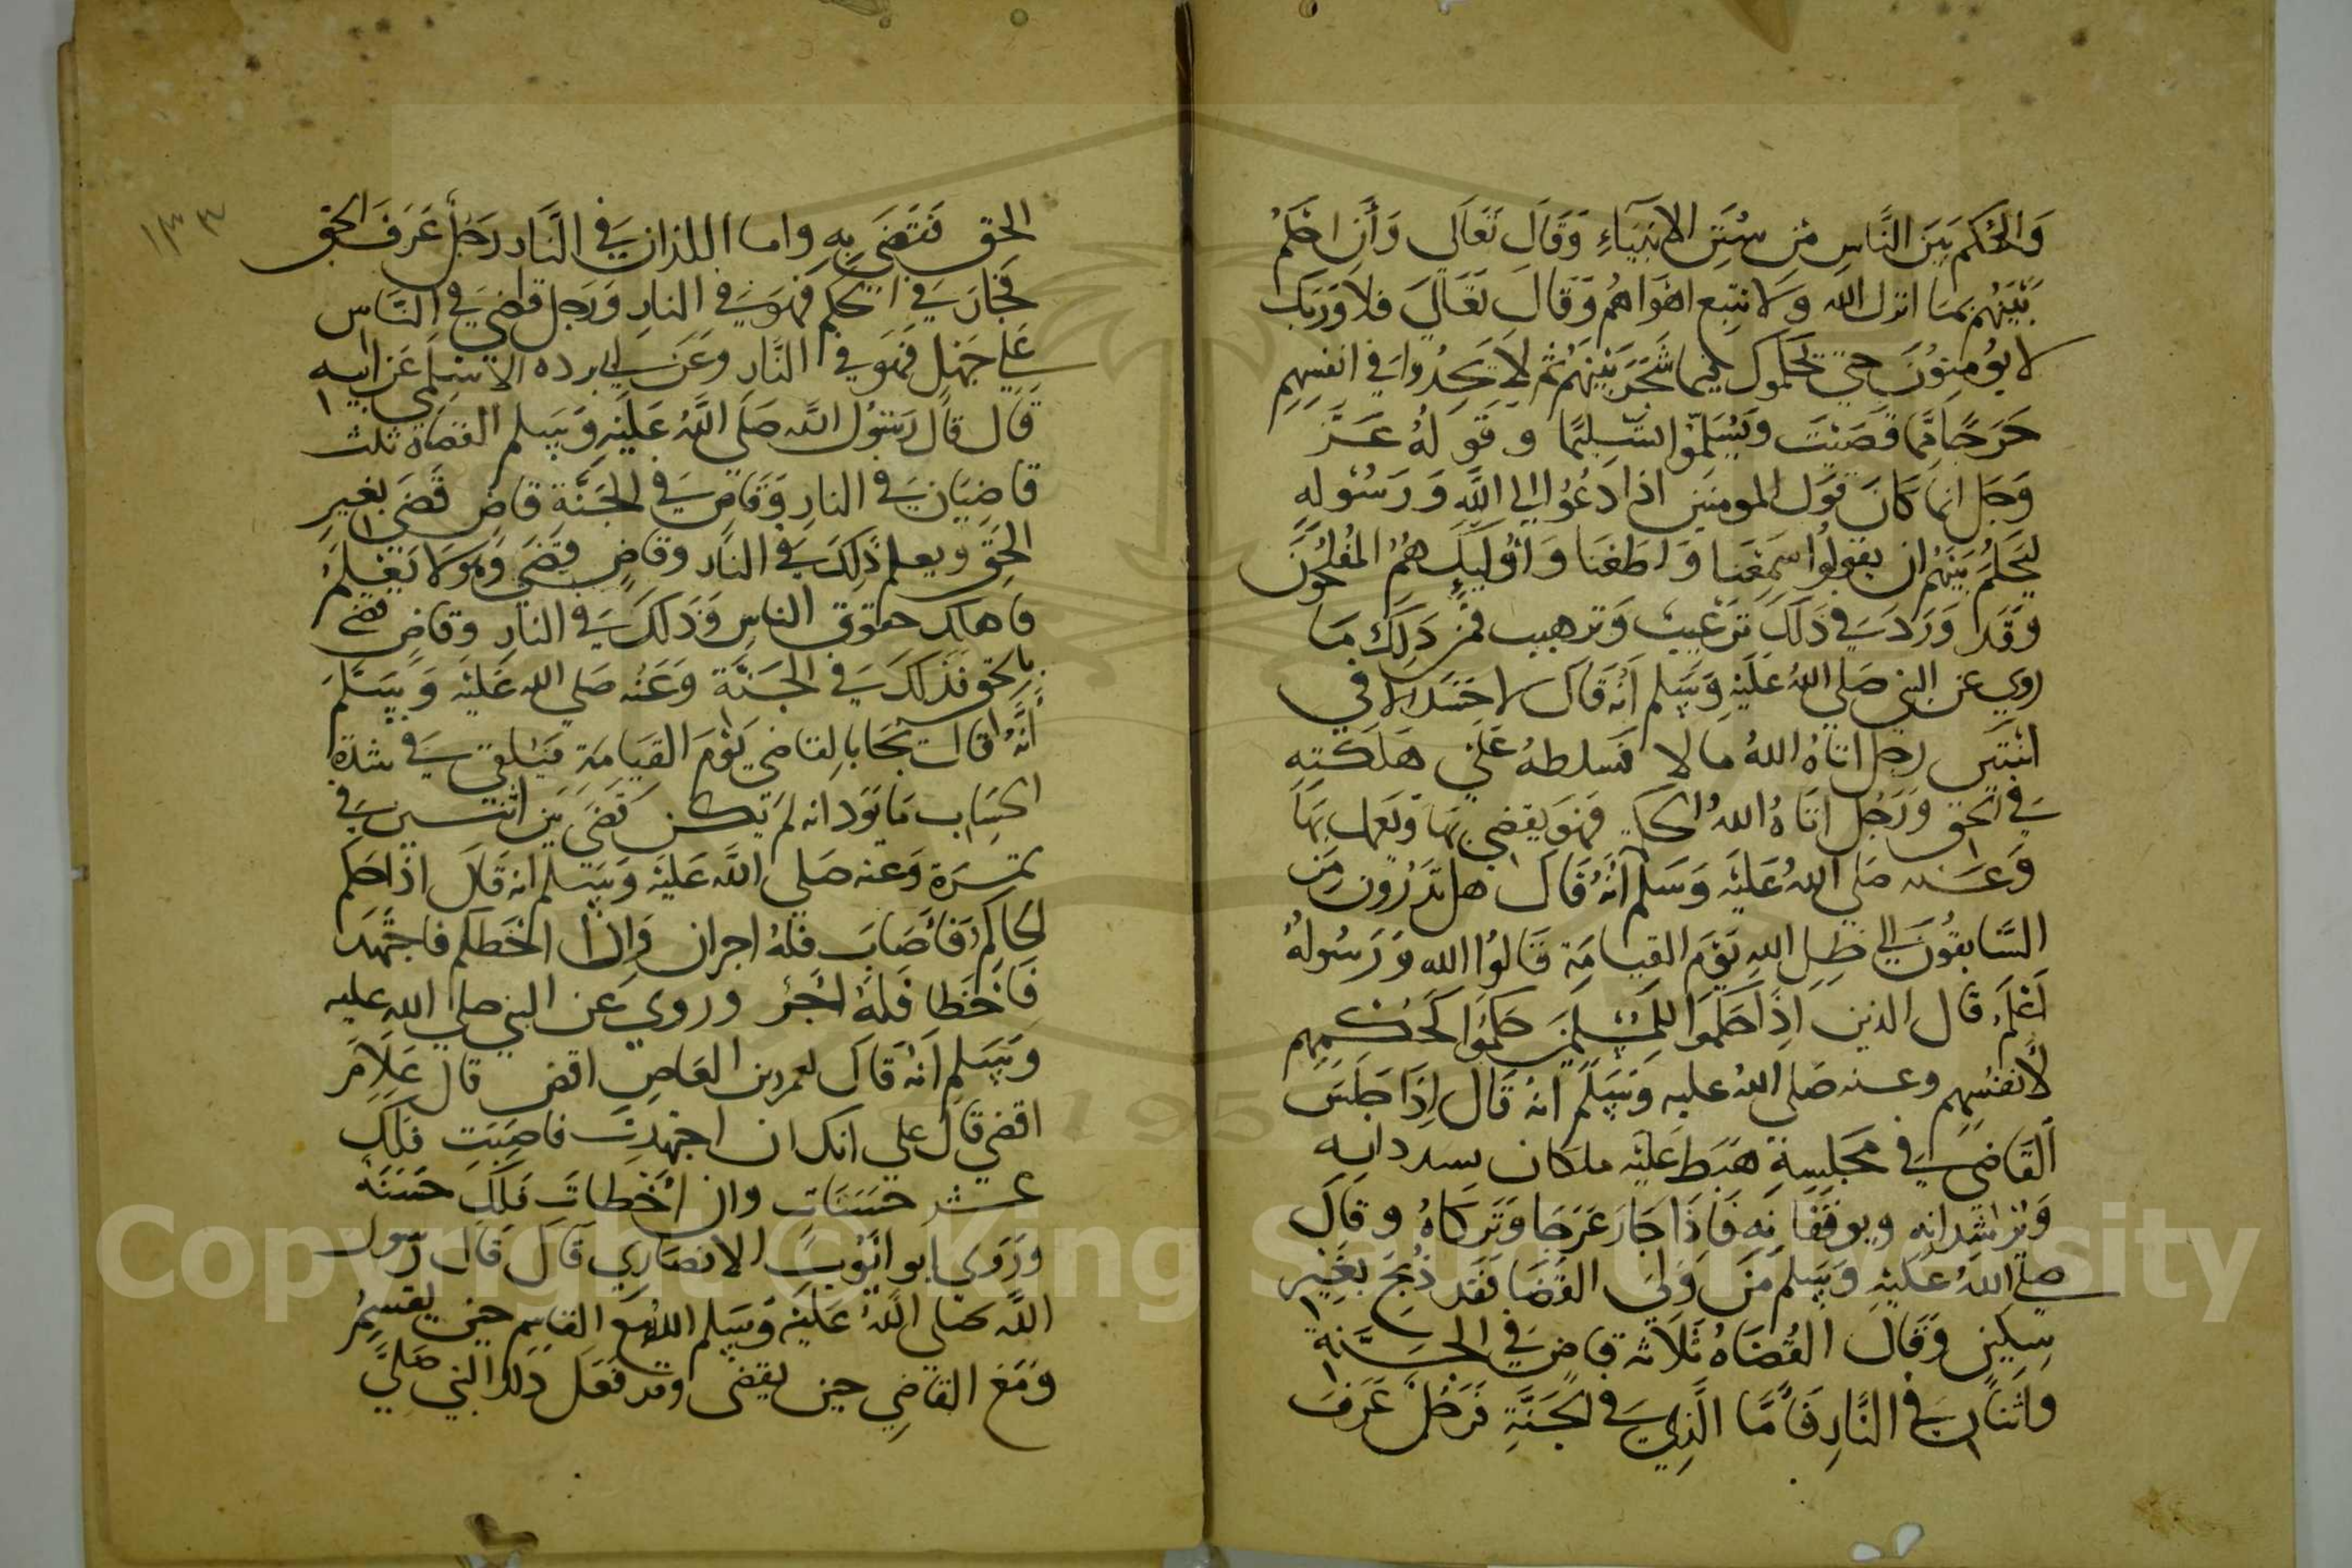 والحكم بين الناس من سنن الانبياء وقال تعالى وأن احكم
بينهم بما انزل الله ولا تتبع اهواهم وقال تعالى فلا وربك
لا يؤمنون حتى يحكموك فيما شجر بينهم ثم لا يجدوا في انفسهم
حرجا مما قضيت ويسلموا تسليما وقوله عز
وجل انما كان قول المومنين اذا دعوا الى الله ورسوله
ليحكم بينهم ان يقولوا سمعنا واطعنا واوليك هم المفلحون
وقد ورد في ذلك ترغيب وترهيب فمن ذلك ما
روي عن النبي صلى الله عليه وسلم انه قال لا حسد الا في
اثنتين رجل اتاه الله مالا فسلطه على هلكته
في الحق ورجل اتاه الله الحكمة فهو يقضي بها ويعمل بها
وعنه صلى الله عليه وسلم انه قال هل تدرون من
السابقون الى ظل الله يوم القيامة قالوا الله ورسوله
أعلم قال الذين اذا حكموا للمسلمين حكموا كحكمهم
لانفسهم وعنه صلى الله عليه وسلم انه قال إذا جلس
القاضي في مجلسه هبط عليه ملكان يسددانه
ويرشدانه ويوفقانه فاذا جار عرجا وتركاه وقال
صلى الله عليه وسلم من ولي القضا فقد ذبح بغير
سكين وقال القضاة ثلاثة قاض في الجنة
واثنان في النار فأما الذي في الجنة فرجل عرف
١٣٣
الحق فقضى به واما اللذان في النار رجل عرف الحق
فجار في الحكم فهو في النار ورجل قضى في الناس
على جهل فهو في النار وعن ابي برده الاسلمي عن ابيه
قال قال رسول الله صلى الله عليه وسلم القضاة ثلث
قاضيان في النار وقاض في الجنة قاض قضى بغير
الحق ويعلم ذلك في النار وقاض قضى وهو لا يعلم
فاهلك حقوق الناس وذلك في النار وقاض قضى
بالحق فذلك في الجنة وعنه صلى الله عليه وسلم
أنه قال يجا بالقاضي يوم القيامة فيلقى في شدة
الحساب ما يود انه لم يكن قضى بين اثنين في
تمرة وعنه صلى الله عليه وسلم انه قال اذا حكم
الحاكم فأصاب فله اجران وإذا حكم فاجتهد
فاخطا فله اجر وروي عن النبي صلى الله عليه
وسلم أنه قال لعمرو بن العاص اقض قال علام
اقضي قال على انك ان اجتهدت فاصبت فلك
عشر حسنات وان أخطات فلك حسنة
وروى ابو ايوب الانصاري قال قال رسول
الله صلى الله عليه وسلم الله مع القاسم حين يقسم
ومع القاضي حين يقضى وقد فعل ذلك النبي صلى
Copyright © King Saud University
195